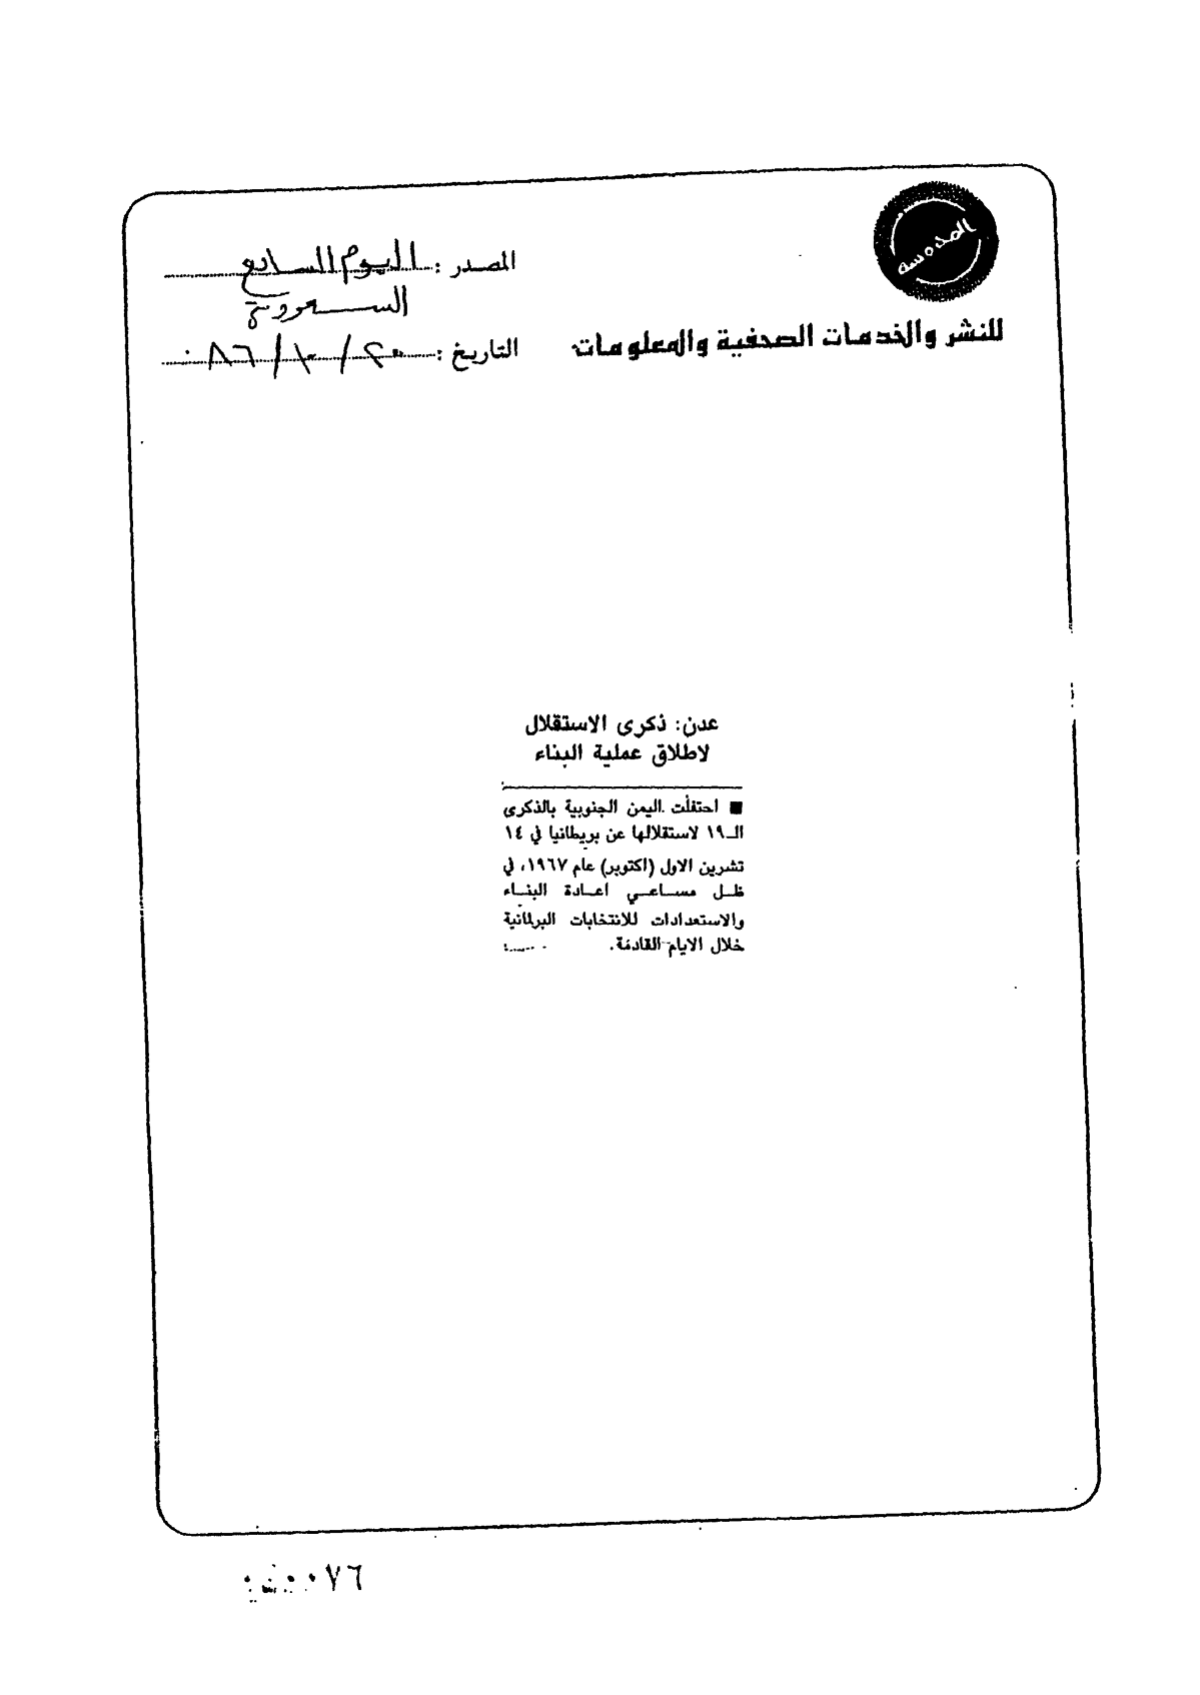 المصدر : اليوم السابع
السعودية
للنشر والخدمات الصحفية والمعلومات
التاريخ : ٢٠/١٠/٨٦
عدن: ذكرى الاستقلال
لاطلاق عملية البناء
■ احتفلت اليمن الجنوبية بالذكرى
الـ١٩ لاستقلالها عن بريطانيا في ١٤
تشرين الاول (اكتوبر) عام ١٩٦٧، في
ظل مساعي اعادة البناء
والاستعدادات للانتخابات البرلمانية
خلال الايام القادمة.